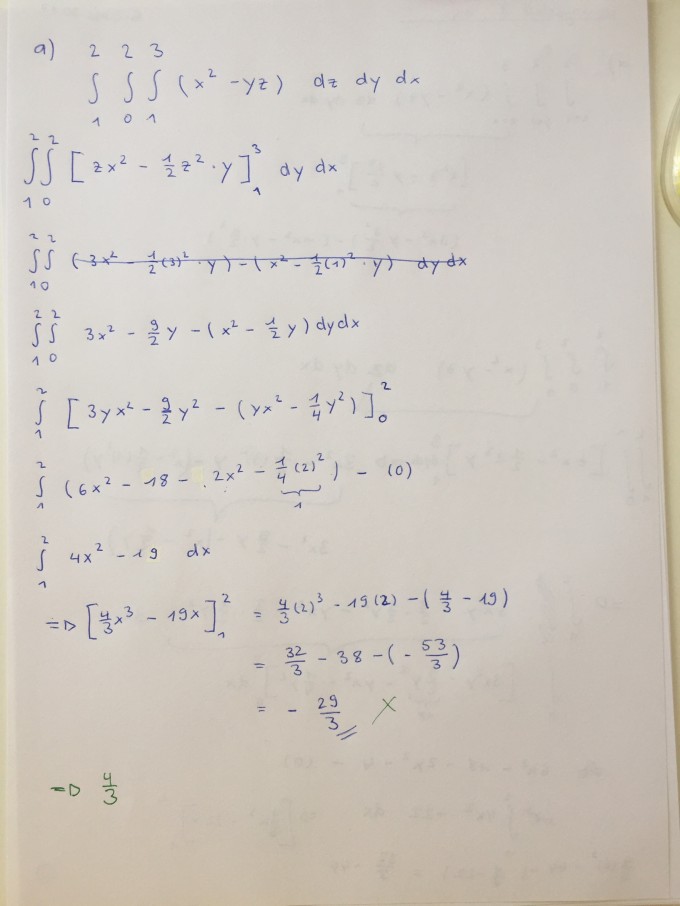 a) ∫₁² ∫₀² ∫₁³ (x² - yz) dz dy dx
∫₁² ∫₀² [zx² - 1/2 z² · y]₁³ dy dx
∫₁² ∫₀² (3x² - 1/2 (3)² · y) - (x² - 1/2 (1)² · y) dy dx
∫₁² ∫₀² 3x² - 9/2 y - (x² - 1/2 y) dy dx
∫₁² [3yx² - 9/2 y² - (yx² - 1/4 y²)]₀²
∫₁² (6x² - 18 - 2x² - 1/4 (2)²) - (0)
1
∫₁² 4x² - 19 dx
⇒ [4/3 x³ - 19x]₁² = 4/3 (2)³ - 19(2) - (4/3 - 19)
= 32/3 - 38 - (- 53/3)
= - 29/3 X
⇒ 4/3